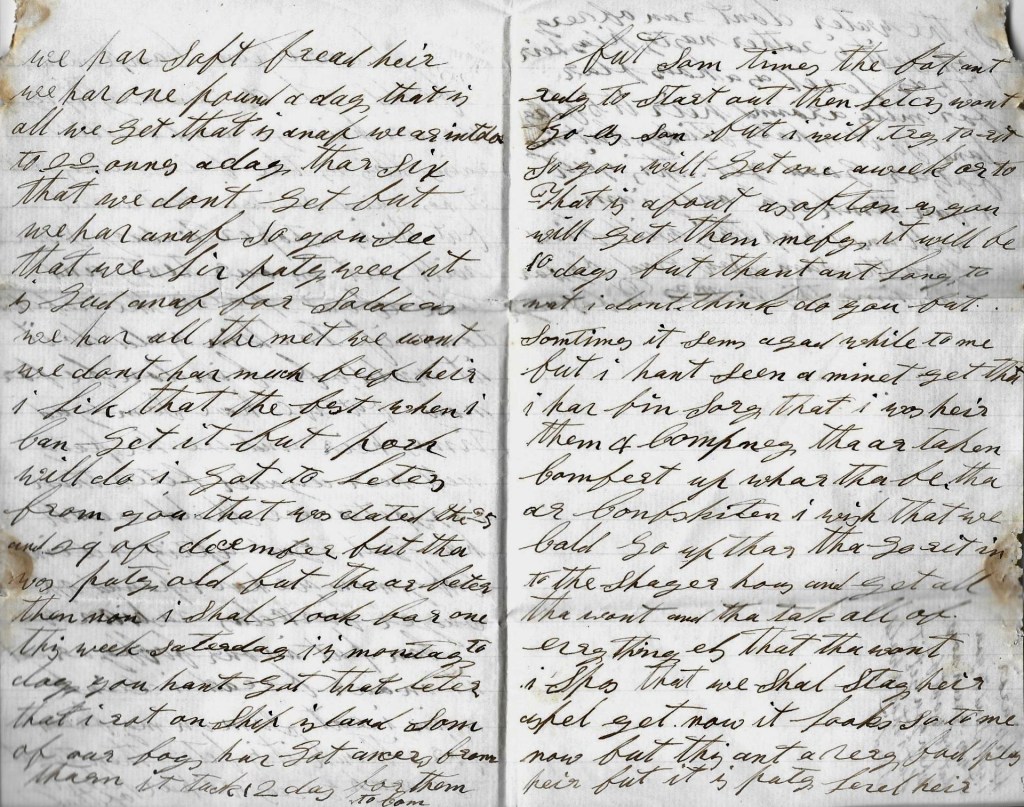 we har Saft bread heir
we har one pound a day that is
all we get that is anaf we ar intda
to 22 onnes a day thar six
that we dont get but
we har anaf so you See
that we liv paty weel it
is Gud anaf for Solders
we har all the met we wont
we dont har much beef heir
i lik that the best when i
can get it but pork
will do i got to leters
from you that was dated the 25
and 29 of december but tha
was paty old but tha ar beter
then non i shal look for one
this week saterday is monday to
day you hant got that leter
that i rot on Ship island Som
of our boys har got ancers from
tharn it tuck 12 day for them
to com
but Som times the bot ant
redy to Start out then leters wont
go as son but i will try to rit
so you will get one a week or to
That is about as often as you
will get them meby it will be
10 days but that ant long to
wat i dont think do you but
Somtimes it sems a gad while to me
but i hant seen a minet yet that
i har bin Sory that i was heir
them 2 Compneys tha ar taken
Comfert up whar tha be tha
ar i wish that we
Cald go up thar tha go rit in
to the Shuger hous and get all
tha wont and tha tak all of
erything els that tha wont
i Spos that we Shal Stay heir
aspel yet now it looks so to me
now but this ant a very bad plas
heir but it is paty level heir